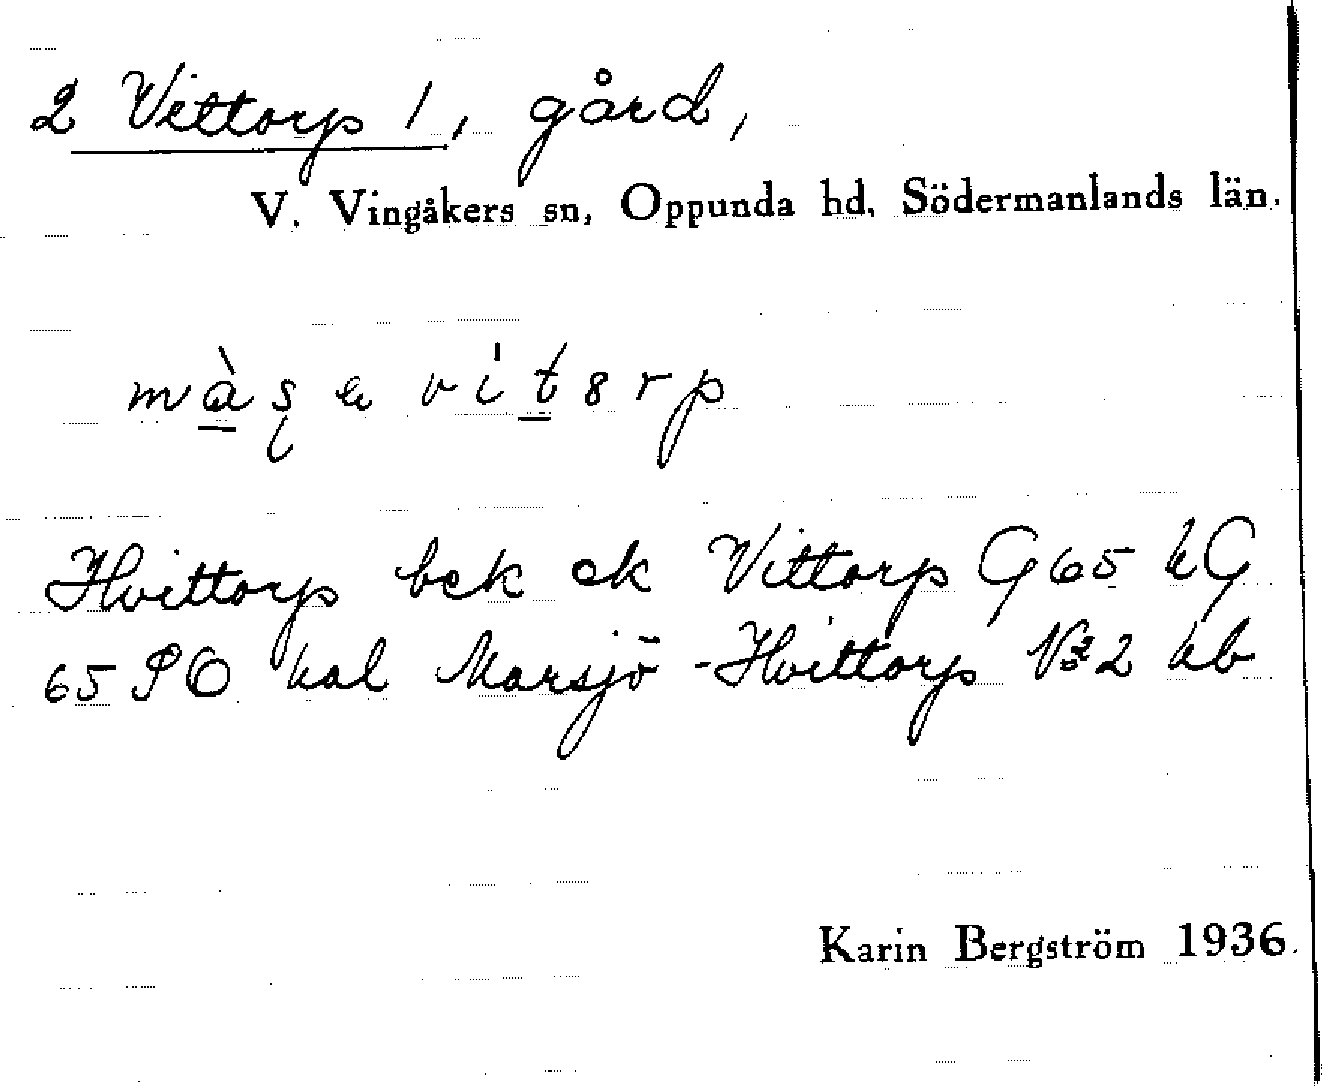 2 Vittorp 1, gård,
V. Vingåkers sn, Oppunda hd, Södermanlands län.
Hvittorp bek ek Vittorp G65 kG
65 PO kal Marsjö - Hvittorp kb
Karin Bergström 1936.